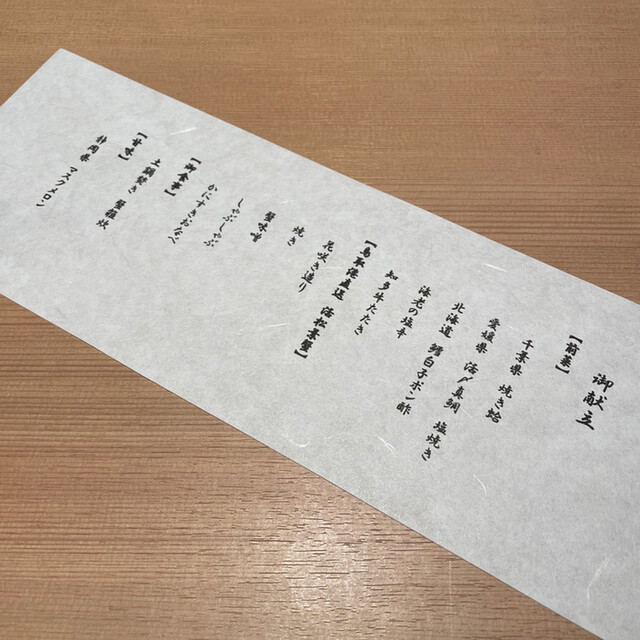 御献立
【前菜】
千葉県 焼き蛤
愛媛県 活〆真鯛 塩焼き
北海道 鱈白子ポン酢
海老の塩辛
知多牛たたき
【鳥取港直送 活松葉蟹】
花咲き造り
焼き
蟹味噌
しゃぶしゃぶ
かにすきおなべ
【御食事】
土鍋炊き 蟹雑炊
【甘味】
静岡県 マスクメロン